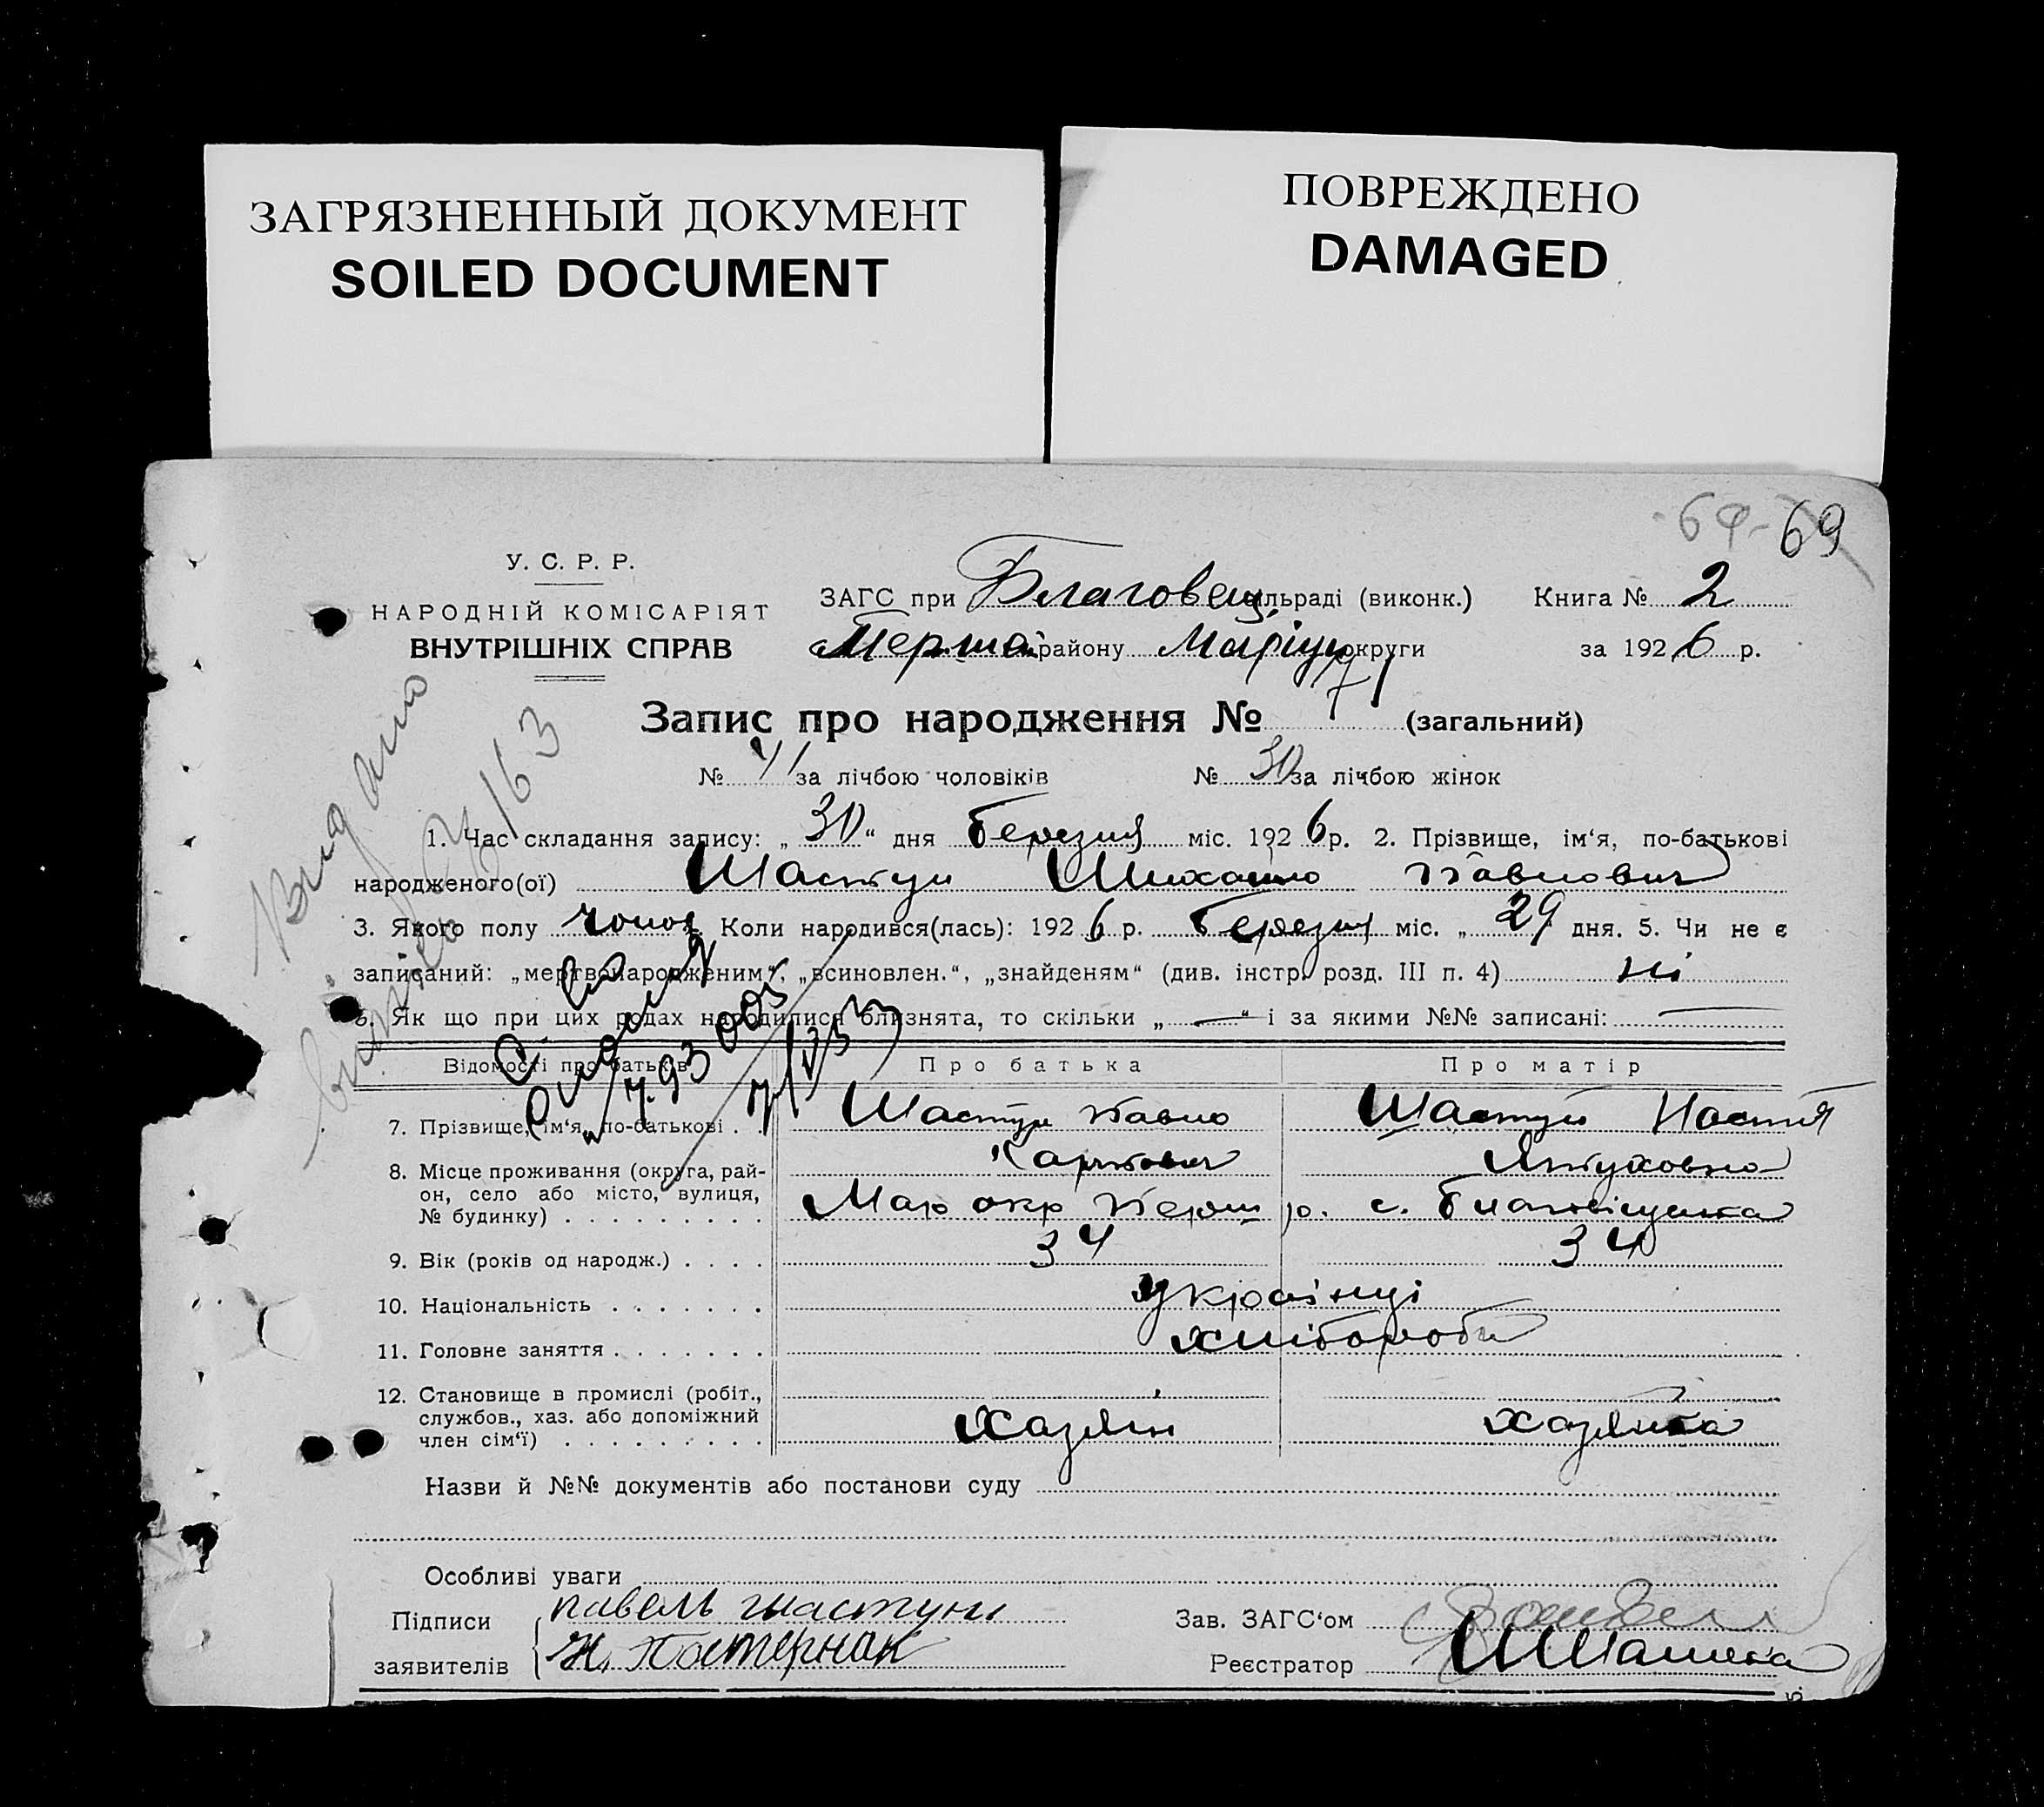 ЗАГРЯЗНЕННЫЙ ДОКУМЕНТ
SOILED DOCUMENT
ПОВРЕЖДЕНО
DAMAGED
69
У. С. Р. Р.
НАРОДНІЙ КОМІСАРІЯТ
ВНУТРІШНІХ СПРАВ
ЗАГС при Благовещ. сільраді (виконк.) Книга № 2
району Маріуп округи за 1926 р.
Запис про народження № 71 (загальний)
№ 41 за лічбою чоловіків № 30 за лічбою жінок
1. Час складання запису: „30“ дня березня міс. 1926 р. 2. Прізвище, ім'я, по-батькові
народженого(ої) Шастун Михайло Павлович
3. Якого полу чолов. Коли народився(лась): 1926 р. березня міс. „29“ дня. 5. Чи не є
записаний: „мертвонародженим“, „всиновлен.“, „знайденям“ (див. інстр. розд. III п. 4) ні
6. Як що при цих родах народилися близнята, то скільки „—“ і за якими №№ записані: —
Відомості про батьків Про батька Про матір
7. Прізвище, ім'я, по-батькові . . Шастун Павло Карпович Шастун Настя
8. Місце проживання (округа, рай-
он, село або місто, вулиця,
№ будинку) . . . . . . . . . Мар окр Перш р. с.
9. Вік (років од народж.) . . . . 34 34
10. Національність . . . . . . . українці
11. Головне заняття . . . . . . . хлібороби
12. Становище в промислі (робіт.,
службов., хаз. або допоміжний
член сім'ї) . . . . . . . . . Хазяін хазяйка
Назви й №№ документів або постанови суду
Особливі уваги
Підписи павель шастун Зав. ЗАГС'ом
заявителів Н. Пастернак Реєстратор
Видано